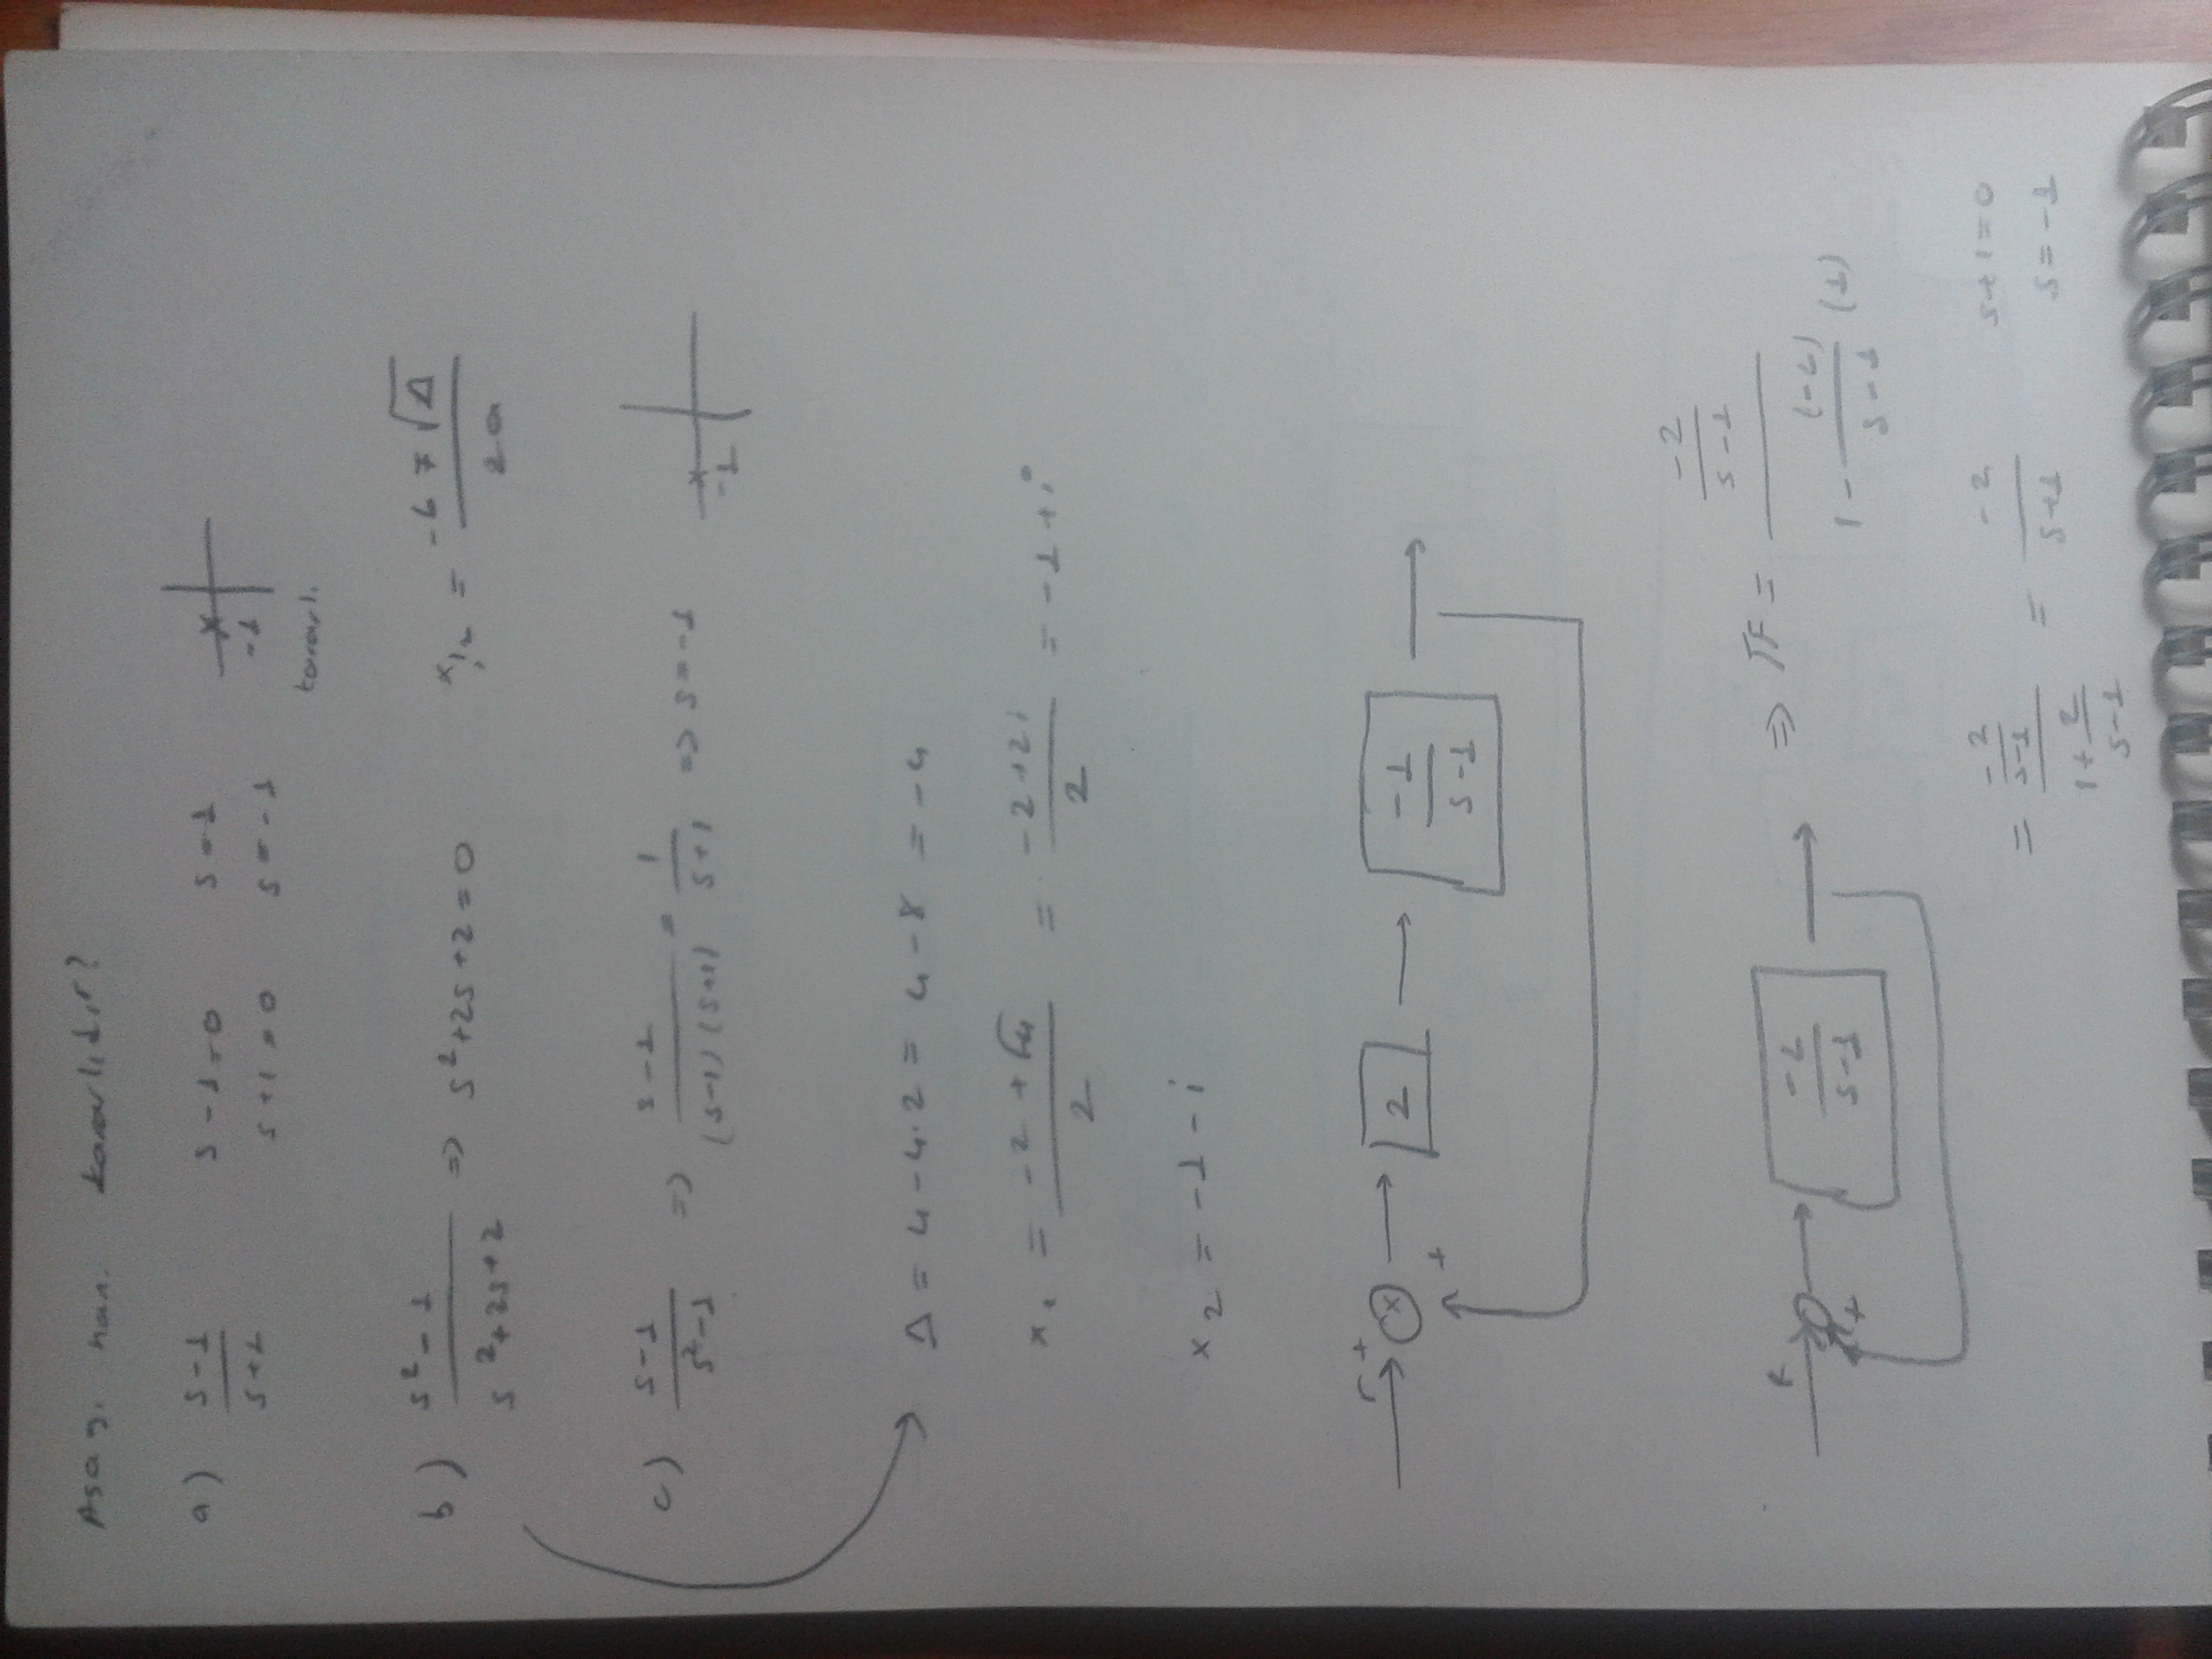 Aşağ. han. kararlıdır?
a) (s-1)/(s+1) s-1=0 s=1
s+1=0 s=-1 -1
kararlı.
b) (s²-1)/(s²+2s+2) => s²+2s+2=0 x₁,₂ = (-b ∓ √Δ)/(2a)
c) (s-1)/(s²-1) => (s-1)/((s-1)(s+1)) = 1/(s+1) => s=-1 -1
Δ = 4-4.2 = 4-8 = -4
x₁ = (-2+√-4)/2 = (-2+2i)/2 = -1+i
x₂ = -1-i
r + x + 2 -1/(s-1)
r + -2/(s-1) => TF = (-2/(s-1))/(1-((-2)/(s-1))(1))
= (-2/(s-1))/(1+2/(s-1)) = -2/(s+1) s+1=0
s=-1